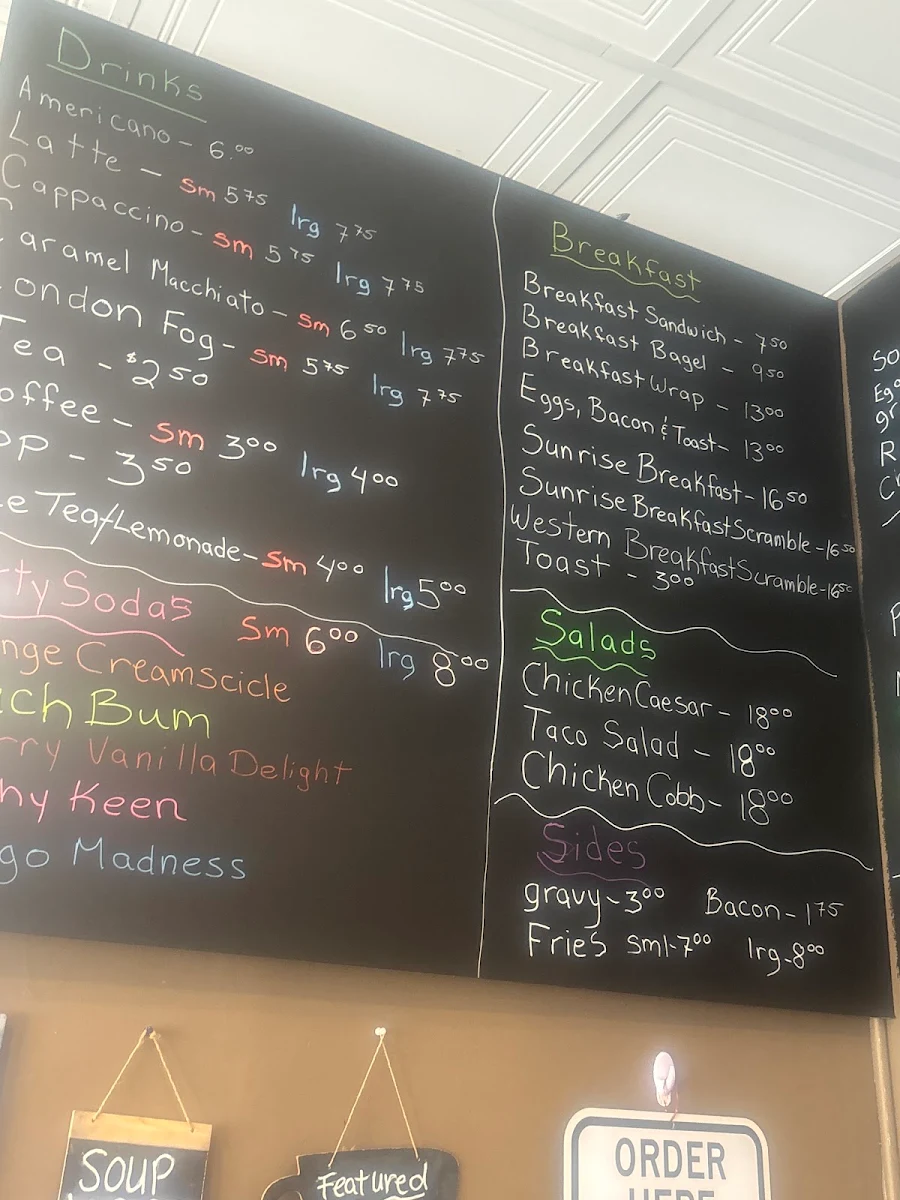 Drinks
Americano - 6.00
Latte - Sm 5 75 lrg 7 75
Cappaccino - Sm 5 75 lrg 7 75
aramel Macchiato - Sm 6 50 lrg 7 75
ondon Fog - Sm 5 75 lrg 7 75
Tea - $2 50
offee - Sm 3 00 lrg 4 00
OP - 3 50
e Tea/Lemonade - Sm 4 00 lrg 5 00
ty Sodas Sm 6 00 lrg 8 00
nge Creamscicle
ch Bum
rry Vanilla Delight
hy Keen
go Madness
Breakfast
Breakfast Sandwich - 7 50
Breakfast Bagel - 9 50
Breakfast Wrap - 13 00
Eggs, Bacon & Toast - 13 00
Sunrise Breakfast - 16 50
Sunrise Breakfast Scramble - 16 50
Western Breakfast Scramble - 16 50
Toast - 3 00
Salads
Chicken Caesar - 18 00
Taco Salad - 18 00
Chicken Cobb - 18 00
Sides
gravy - 3 00 Bacon - 1 75
Fries sml - 7 00 lrg - 8 00
SOUP
Featured
ORDER
HERE